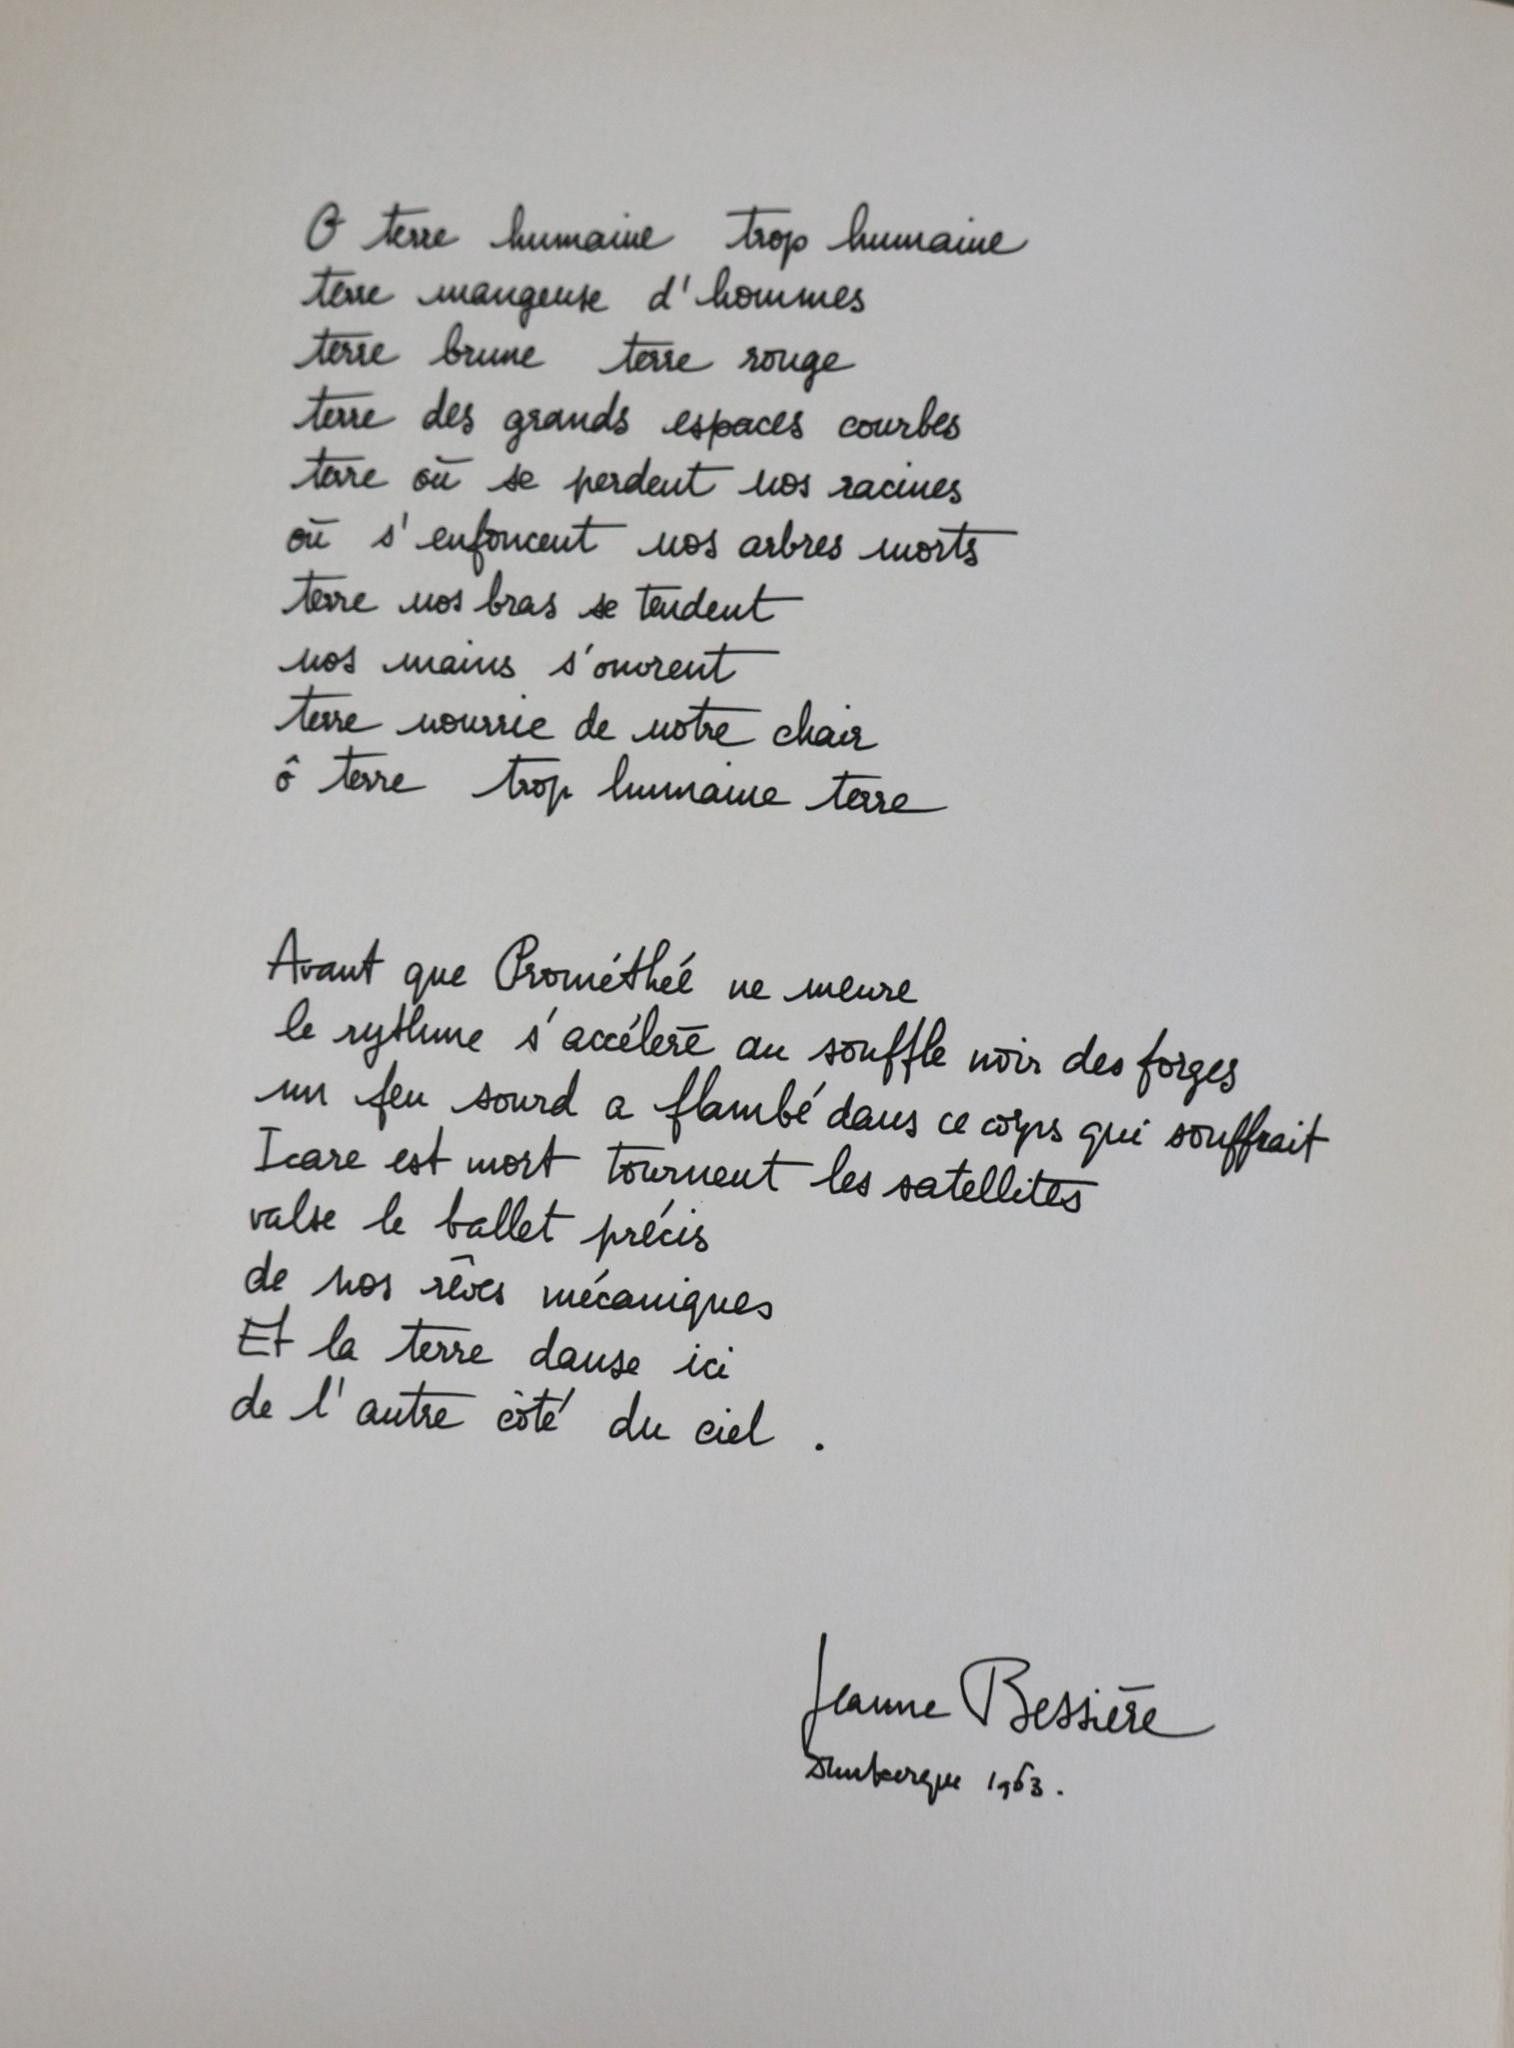 O terre humaine trop humaine
terre mangeuse d'hommes
terre brune terre rouge
terre des grands espaces courbes
terre où se perdent nos racines
où s'enfoncent nos arbres morts
terre nos bras se tendent
nos mains s'ouvrent
terre nourrie de notre chair
ô terre trop humaine terre
Avant que Prométhéé ne meure
le rythme s'accélère au souffle noir des forges
un feu sourd a flambé dans ce corps qui souffrait
Icare est mort tournent les satellites
valse le ballet précis
de nos rêves mécaniques
Et la terre danse ici
de l'autre côté du ciel .
Jeanne Bessière
Dunkerque 1963.